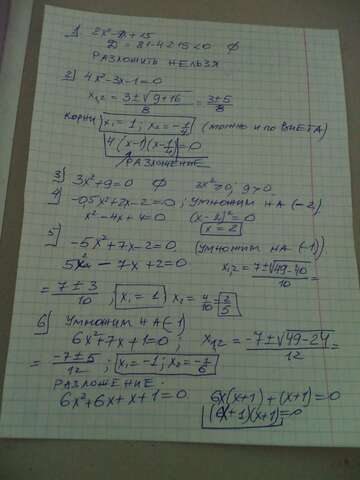 1) 2x²-9x+15
D = 81-4·2·15<0 Ø
РАЗЛОЖИТЬ НЕЛЬЗЯ
2) 4x²-3x-1=0
x₁,₂ = (3±√(9+16))/8 = (3±5)/8
КОРНИ x₁=1; x₂=-1/4 (МОЖНО И ПО ВИЕТА)
4(x-1)(x-1/4)=0
РАЗЛОЖЕНИЕ
3) 3x²+9=0 Ø 3x²≥0; 9>0
4) -0,5x²+2x-2=0; УМНОЖИМ НА (-2)
x²-4x+4=0 (x-2)²=0
x=2
5) -5x²+7x-2=0 (УМНОЖИМ НА (-1))
5x²-7x+2=0 x₁,₂=(7±√(49-40))/10=
=(7±3)/10; x₁=1 x₂=4/10=2/5
6) УМНОЖИМ НА (-1)
6x²+7x+1=0; x₁,₂=(-7±√(49-24))/12=
=(-7±5)/12; x₁=-1; x₂=-1/6
РАЗЛОЖЕНИЕ.
6x²+6x+x+1=0 6x(x+1)+(x+1)=0
(6x+1)(x+1)=0